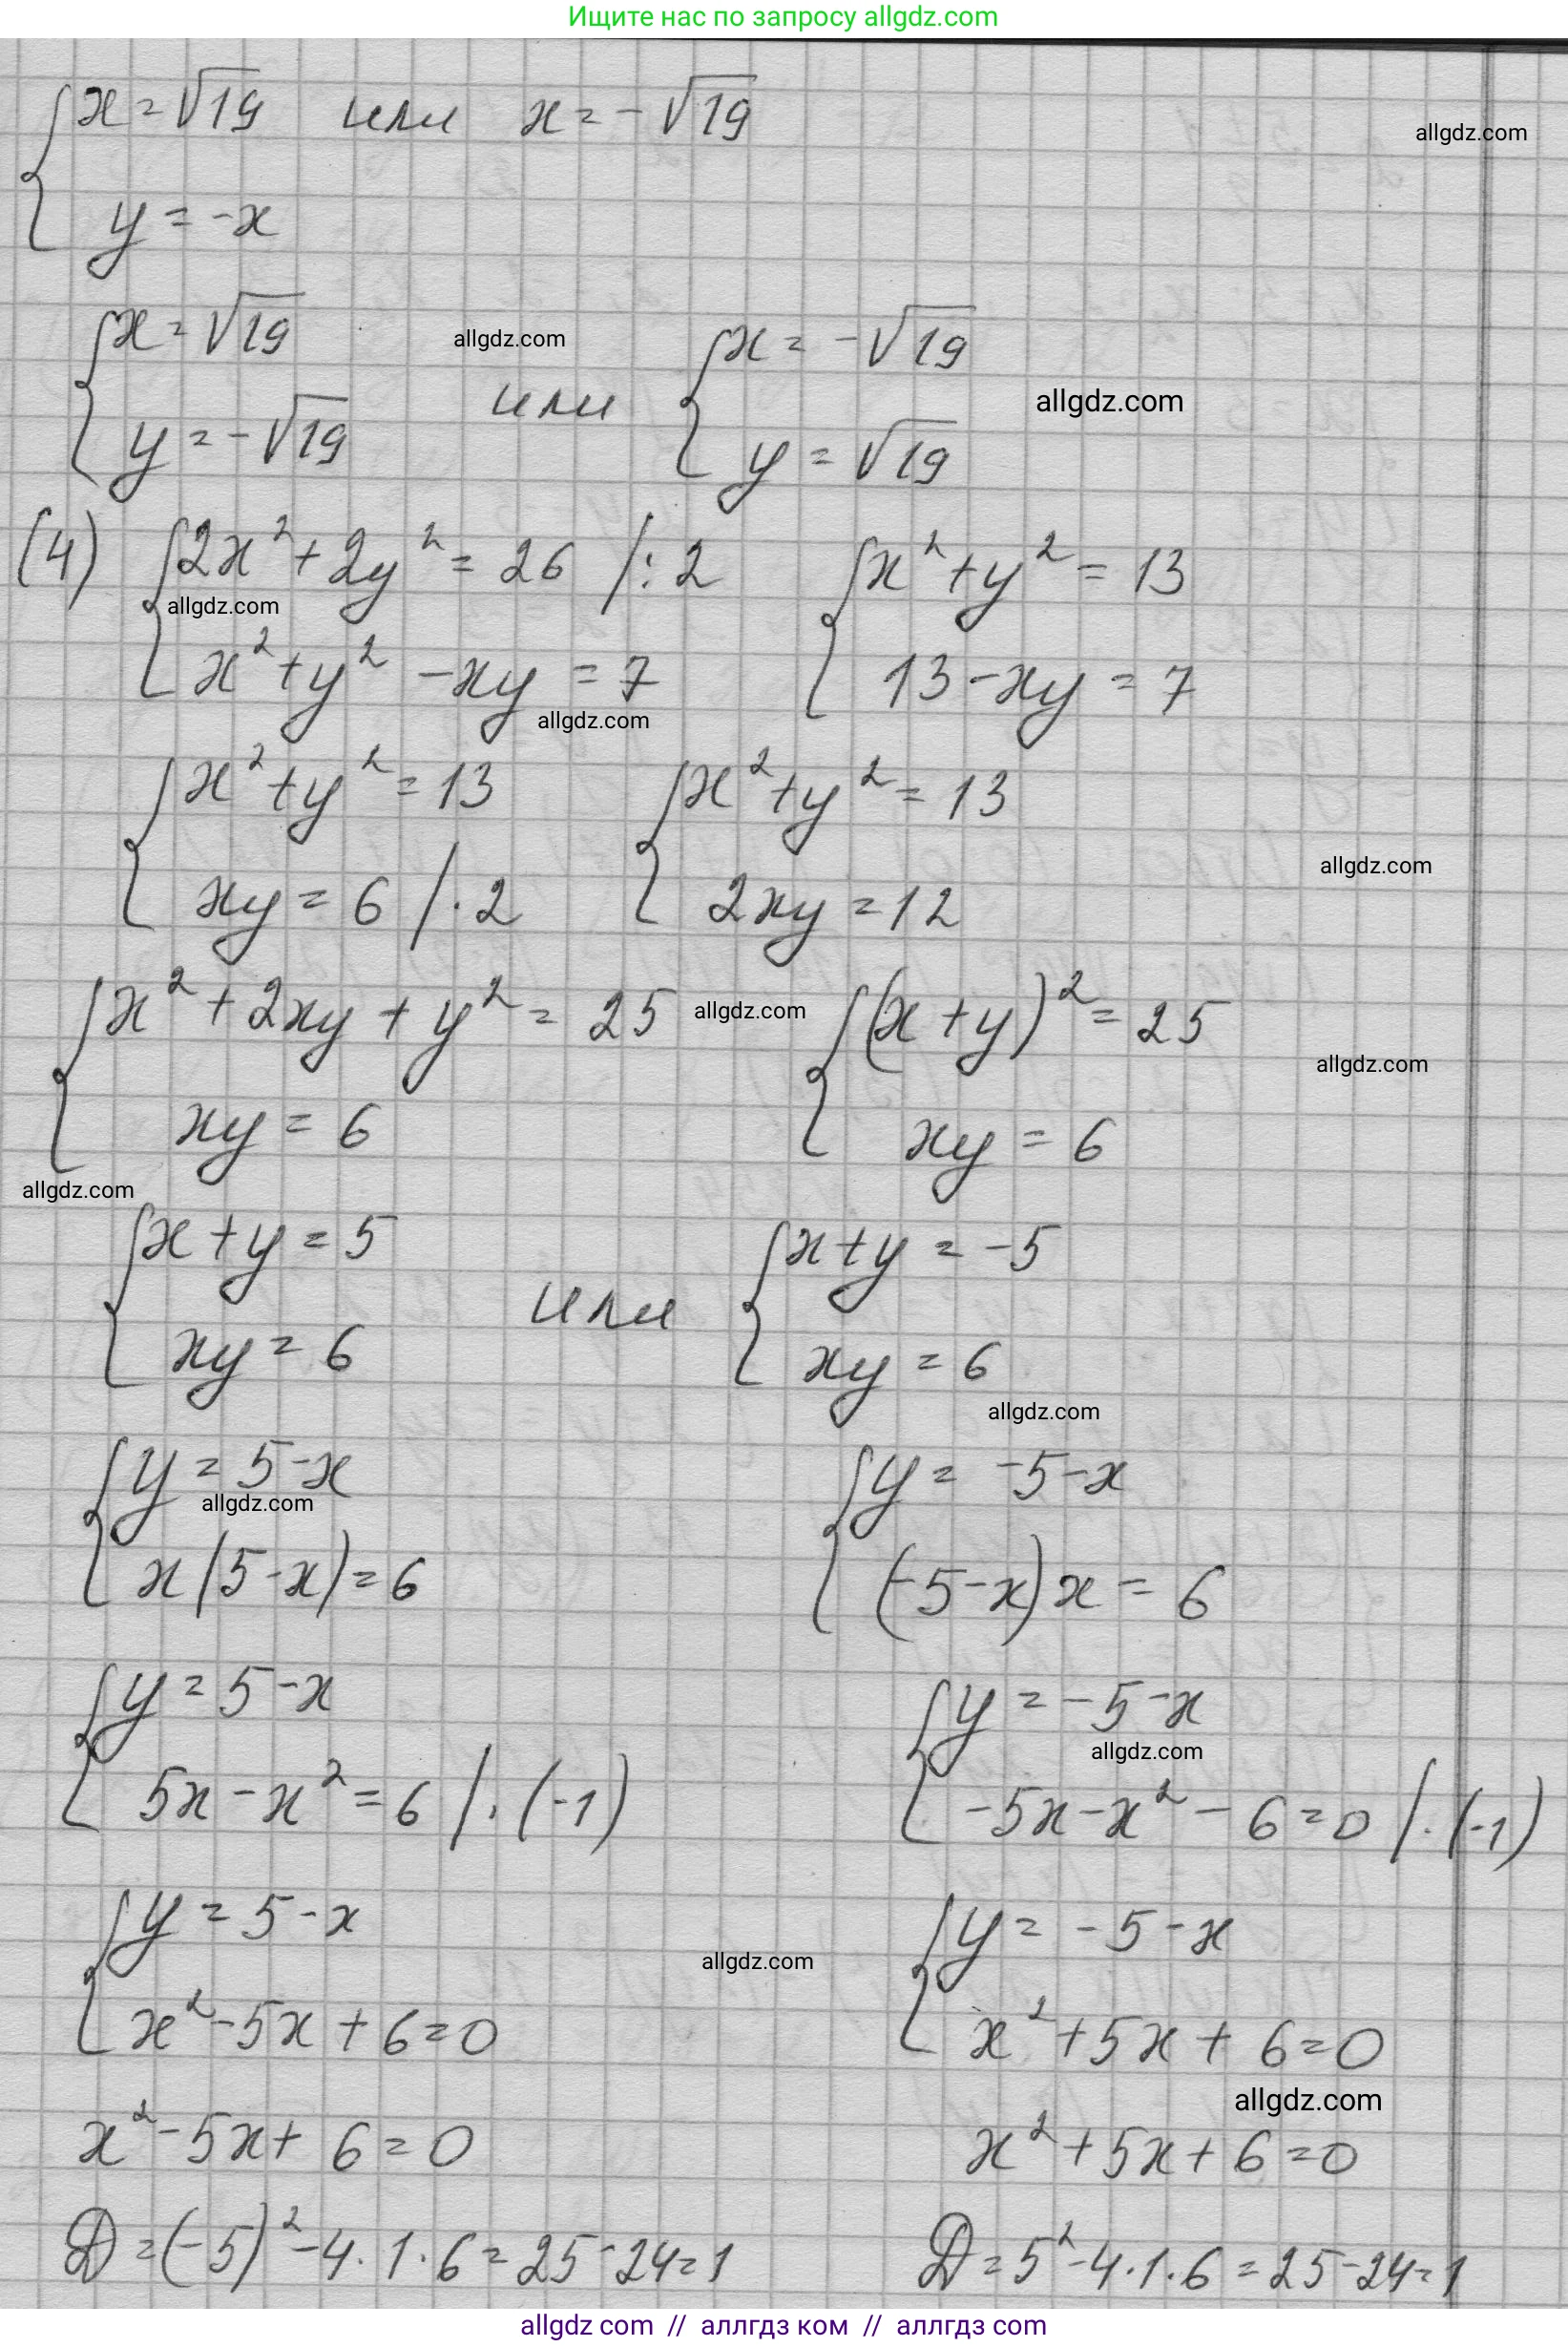 Ищите нас по запросу allgdz.com
{ x = √19 или x = -√19
allgdz.com
y = -x
{ x = √19
y = -√19
allgdz.com
или
{ x = -√19
y = √19
allgdz.com
(4) { 2x² + 2y² = 26 /: 2
allgdz.com
x² + y² - xy = 7
allgdz.com
{ x² + y² = 13
13 - xy = 7
{ x² + y² = 13
xy = 6 /· 2
{ x² + y² = 13
2xy = 12
allgdz.com
{ x² + 2xy + y² = 25
xy = 6
allgdz.com
{ (x + y)² = 25
xy = 6
allgdz.com
allgdz.com
{ x + y = 5
xy = 6
или
{ x + y = -5
xy = 6
allgdz.com
{ y = 5 - x
allgdz.com
x(5 - x) = 6
{ y = -5 - x
(-5 - x)x = 6
{ y = 5 - x
5x - x² = 6 /· (-1)
{ y = -5 - x
allgdz.com
-5x - x² - 6 = 0 /· (-1)
{ y = 5 - x
x² - 5x + 6 = 0
allgdz.com
{ y = -5 - x
x² + 5x + 6 = 0
allgdz.com
x² - 5x + 6 = 0
x² + 5x + 6 = 0
D = (-5)² - 4 · 1 · 6 = 25 - 24 = 1
D = 5² - 4 · 1 · 6 = 25 - 24 = 1
allgdz.com // аллгдз ком // аллгдз com